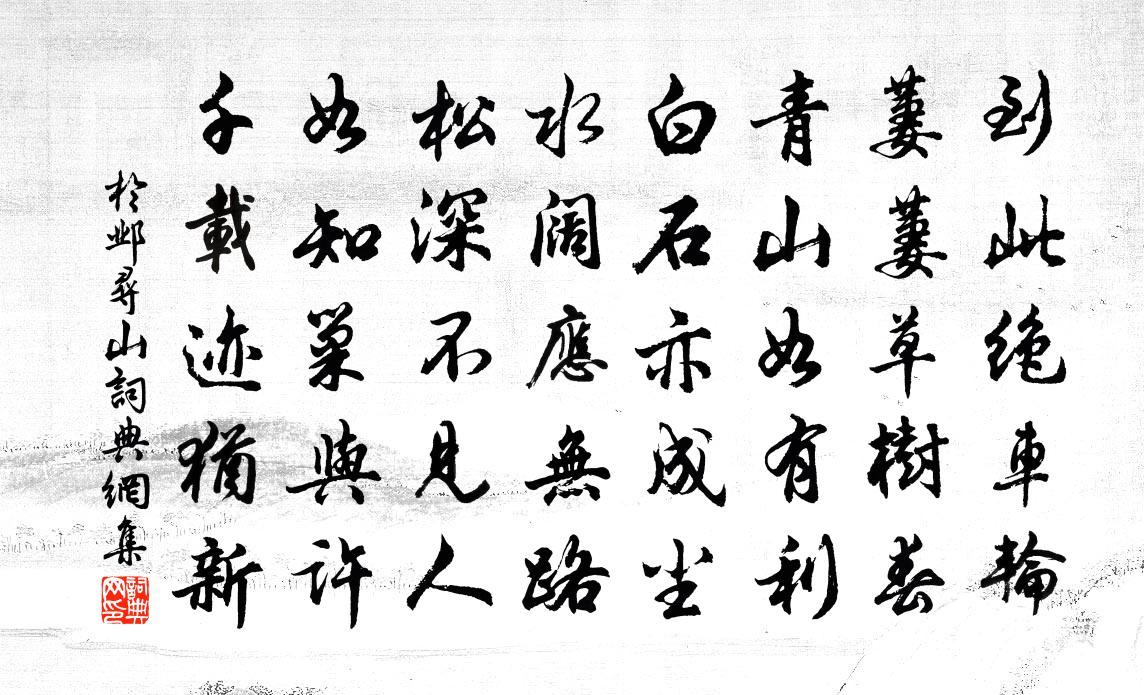 到此絶車輪
萋萋草樹春
青山如有利
白石亦成尘
水闊應無路
松深不見人
如知巢與許
千載迹猶新
於邺尋山詞典網集
詞典
网印